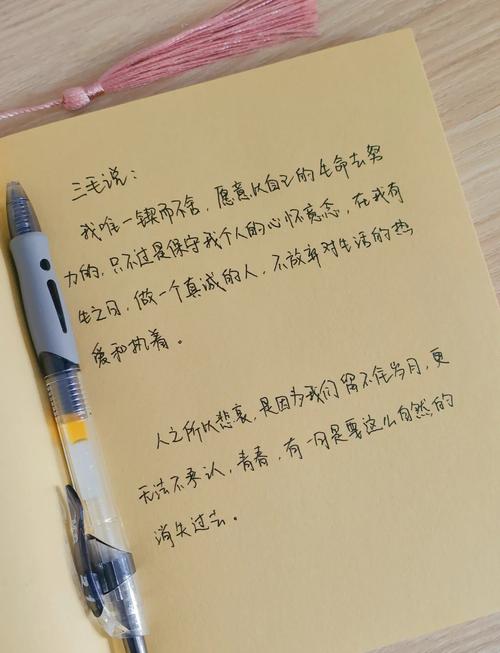 三毛说：
我唯一锲而不舍，愿意以自己的生命去努
力的，只不过是保守我个人的心怀意念，在我有
生之日，做一个真诚的人，不放弃对生活的热
爱和执着。
人之所以悲哀，是因为我们留不住岁月，更
无法不承认，青春，有一日是要这么自然的
消失过去。